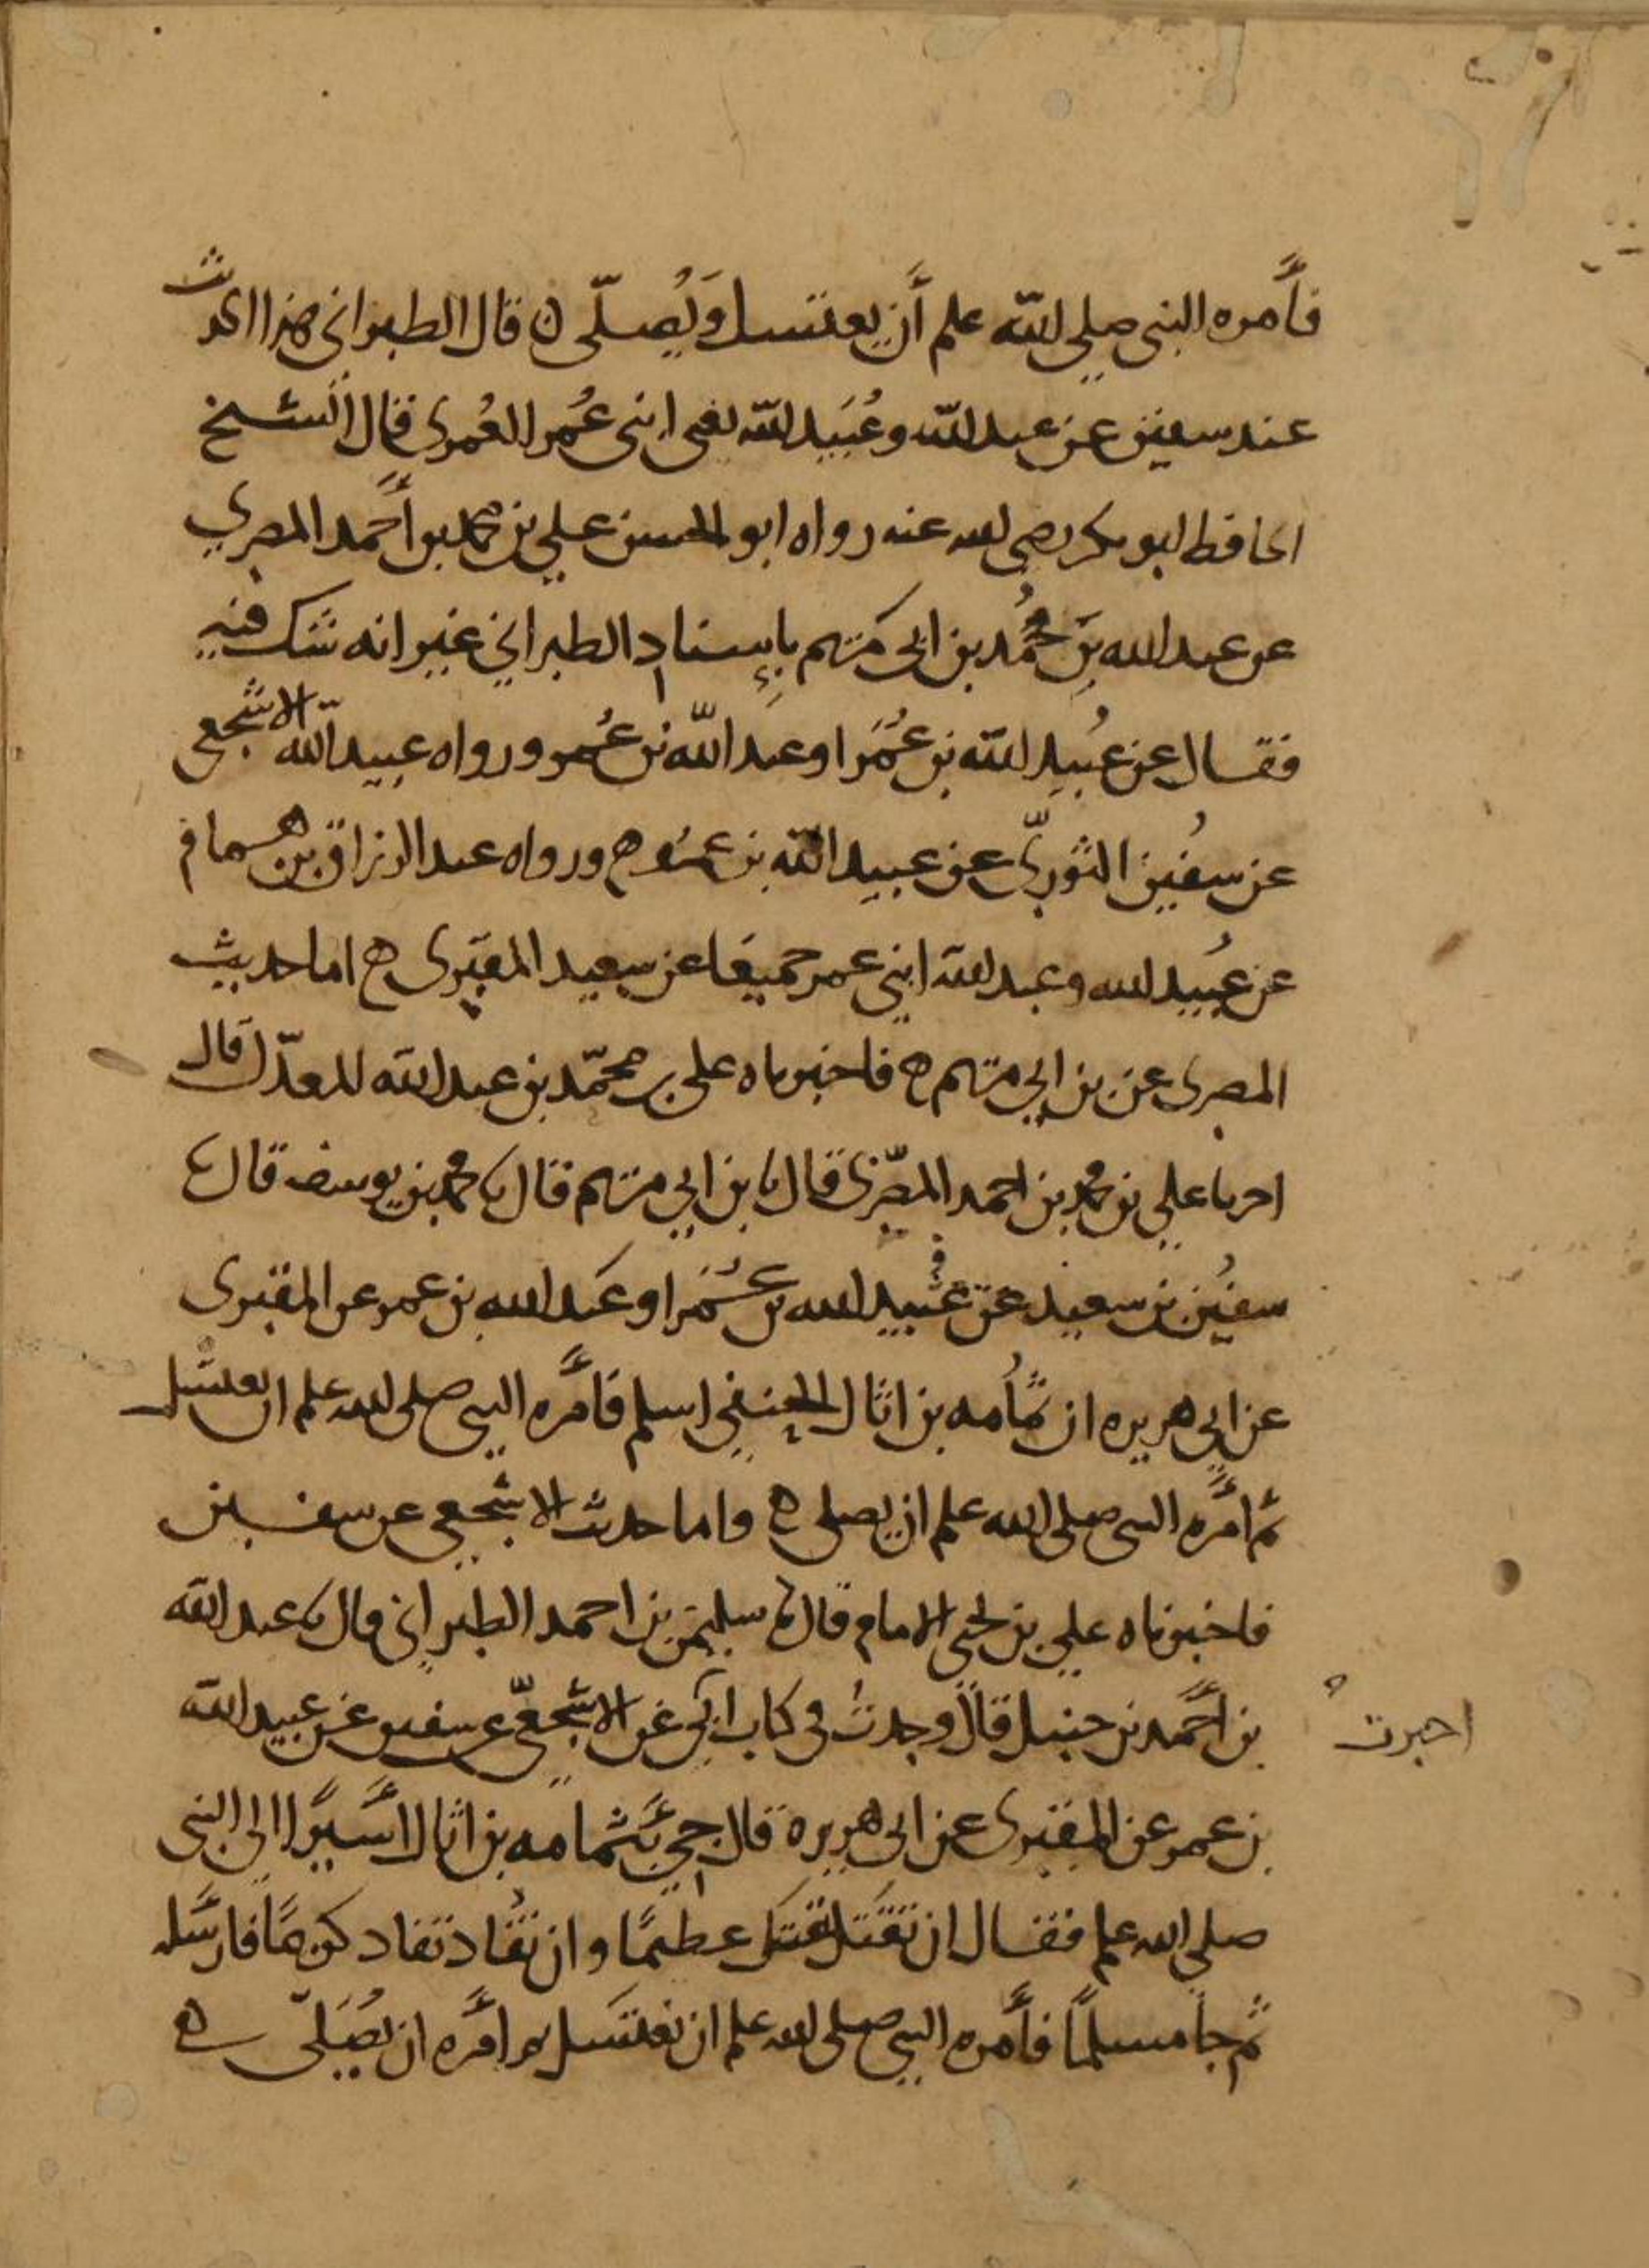 فأمره النبي صلى الله علم أن يغتسل ويُصلّي ن قال الطبراني هذا الحديث
عند سفين عن عبد الله وعُبَيد الله يعني ابني عُمر العُمري فقال الشيخ
الحافظ ابو بكر رضي الله عنه رواه ابو الحسن علي بن محمد بن أحمد المصري
عن عبد الله بن محُمد بن ابي مَريم بإسناد الطبراني غير انه شك فيه
فقال عن عُبيد الله بن عُمَر او عبد الله بن عُمر ورواه عبيد الله الاشجعي
عن سُفين الثوريّ عن عبيد الله بن عمر ه ورواه عبد الرزاق بن همام
عن عُبيد الله وعبد الله ابني عمر جميعًا عن سعيد المقبري ه اما حديث
المصري عن بن ابي مريم ه فاخبرناه علي بن محمّد بن عبد الله المعدّل قال
اخبرنا علي بن محمد بن احمد المصّري قال نا بن ابي مريم قال نا محمد بن يوسف قال نا
سفيُن بن سعيد عن عُبيد الله بن عُمَر او عَبد الله بن عمر عن المقبري
عن ابي هريره ان ثُمامه بن اثال الحنفي اسلم فأمَره النبي صلى الله علم ان يغتسل
ثم أمَره النبي صلى الله علم ان يصلي ه واما حديث الاشجعي عن سفين
فاخبرناه علي بن يحيى الامام قال نا سليمن بن احمد الطبراني قال نا عبد الله
بن أحَمد بن حنبل قال وجدتُ في كتاب ابي عن الاشجعيّ عن سفين عن عبيد الله
اخبرت
بن عمر عن المقبري عن ابي هريره قال جيئَ بثمامه بن اثال أسَيرًا الى النبي
صلى الله علم فقال ان تقتَل تقتَل عظيمًا وان تُفاد تفاد كريمًا فارسَله
ثم جا مسلمًا فأمَره النبي صلى الله علم ان يغتسَل ثم امَره ان يُصَلّي ه